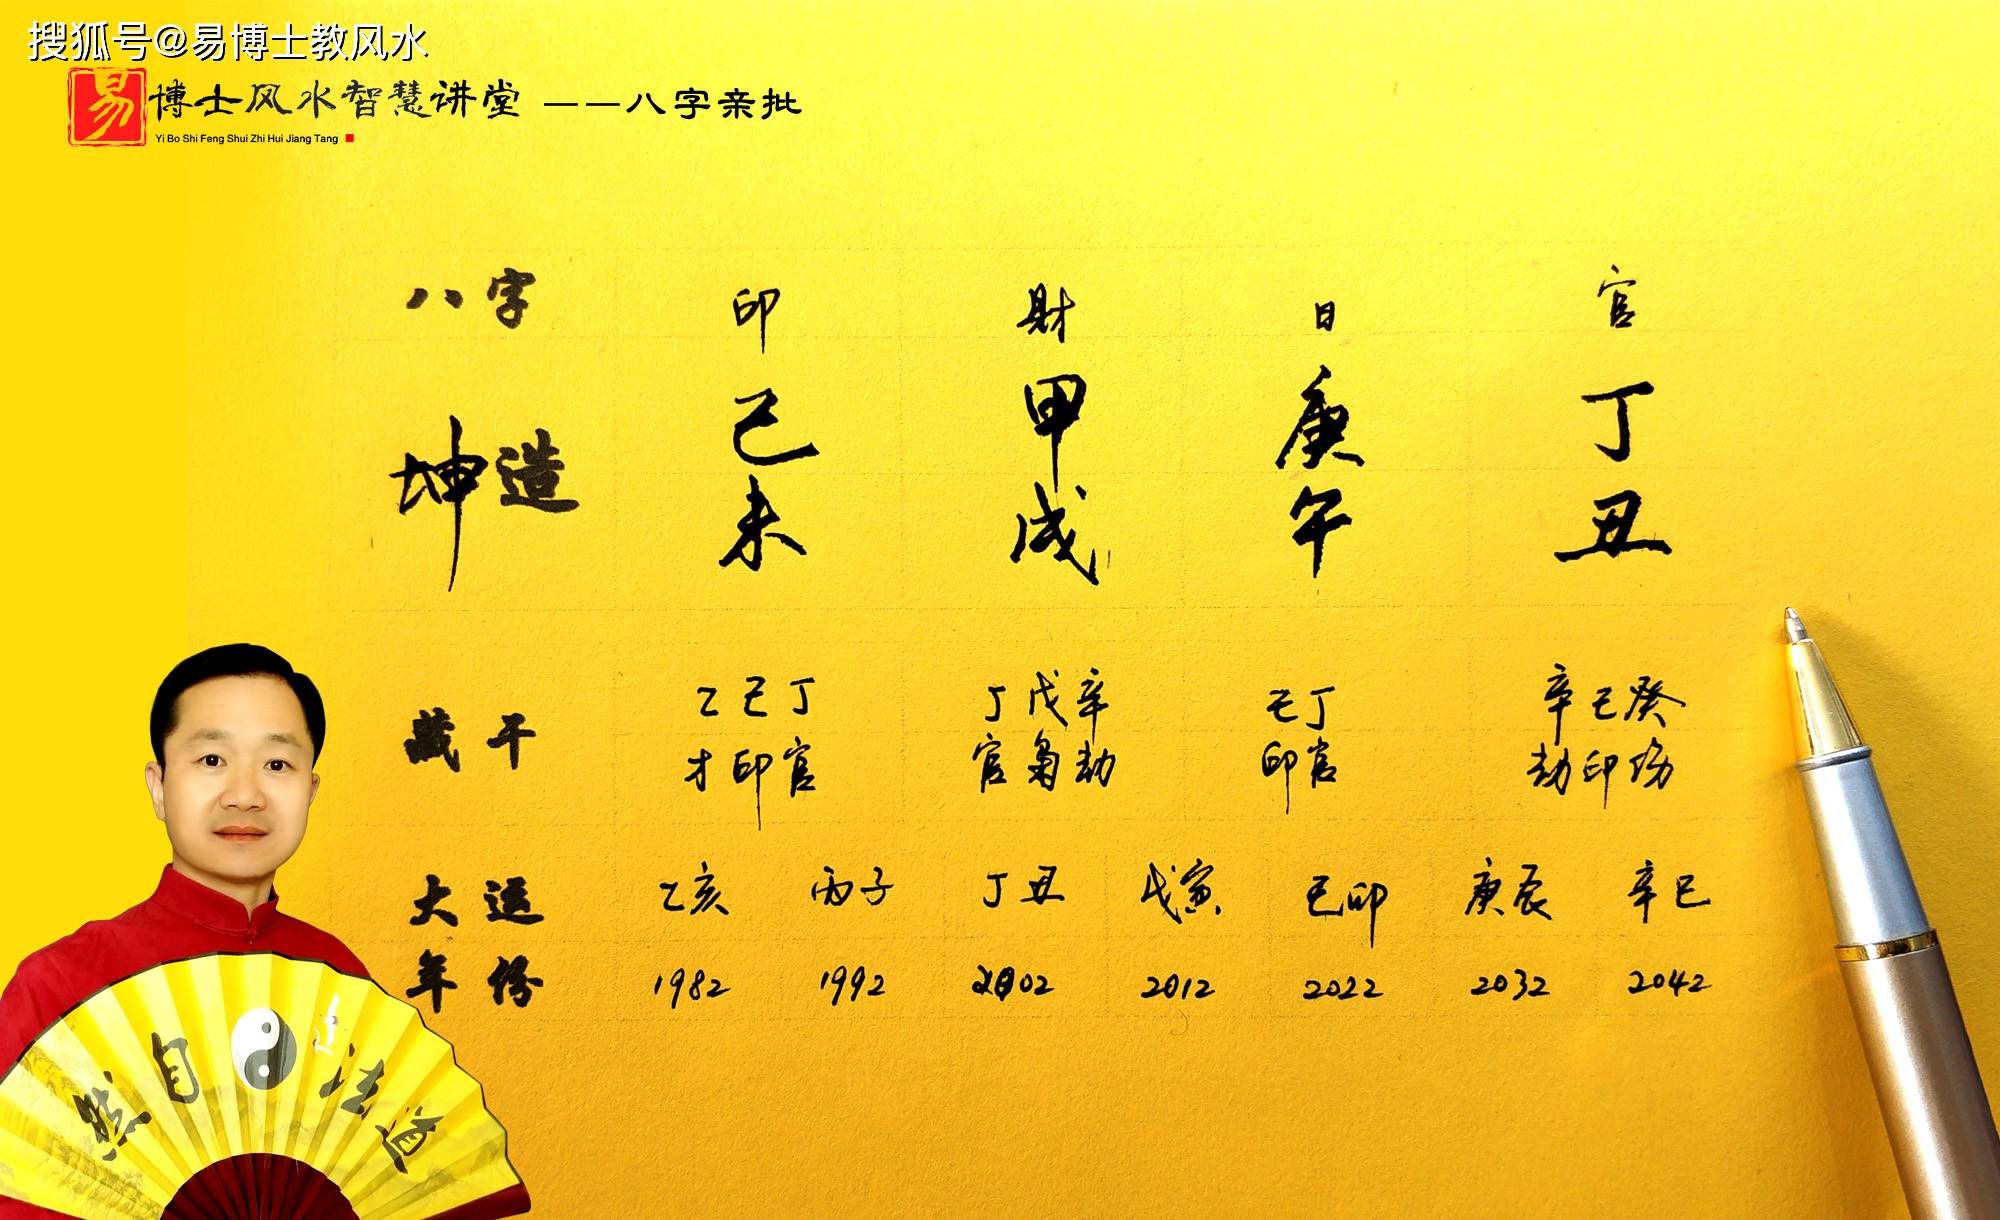 搜狐号@易博士教风水
易博士风水智慧讲堂 ——八字亲批
Yi Bo Shi Feng Shui Zhi Hui Jiang Tang
八字 印 财 日 官
坤造 己 甲 庚 丁
未 戌 午 丑
藏干 乙己丁 丁戊辛 己丁 辛己癸
才印官 官枭劫 印官 劫印伤
大运 乙亥 丙子 丁丑 戊寅 己卯 庚辰 辛巳
年份 1982 1992 2002 2012 2022 2032 2042
然自法道